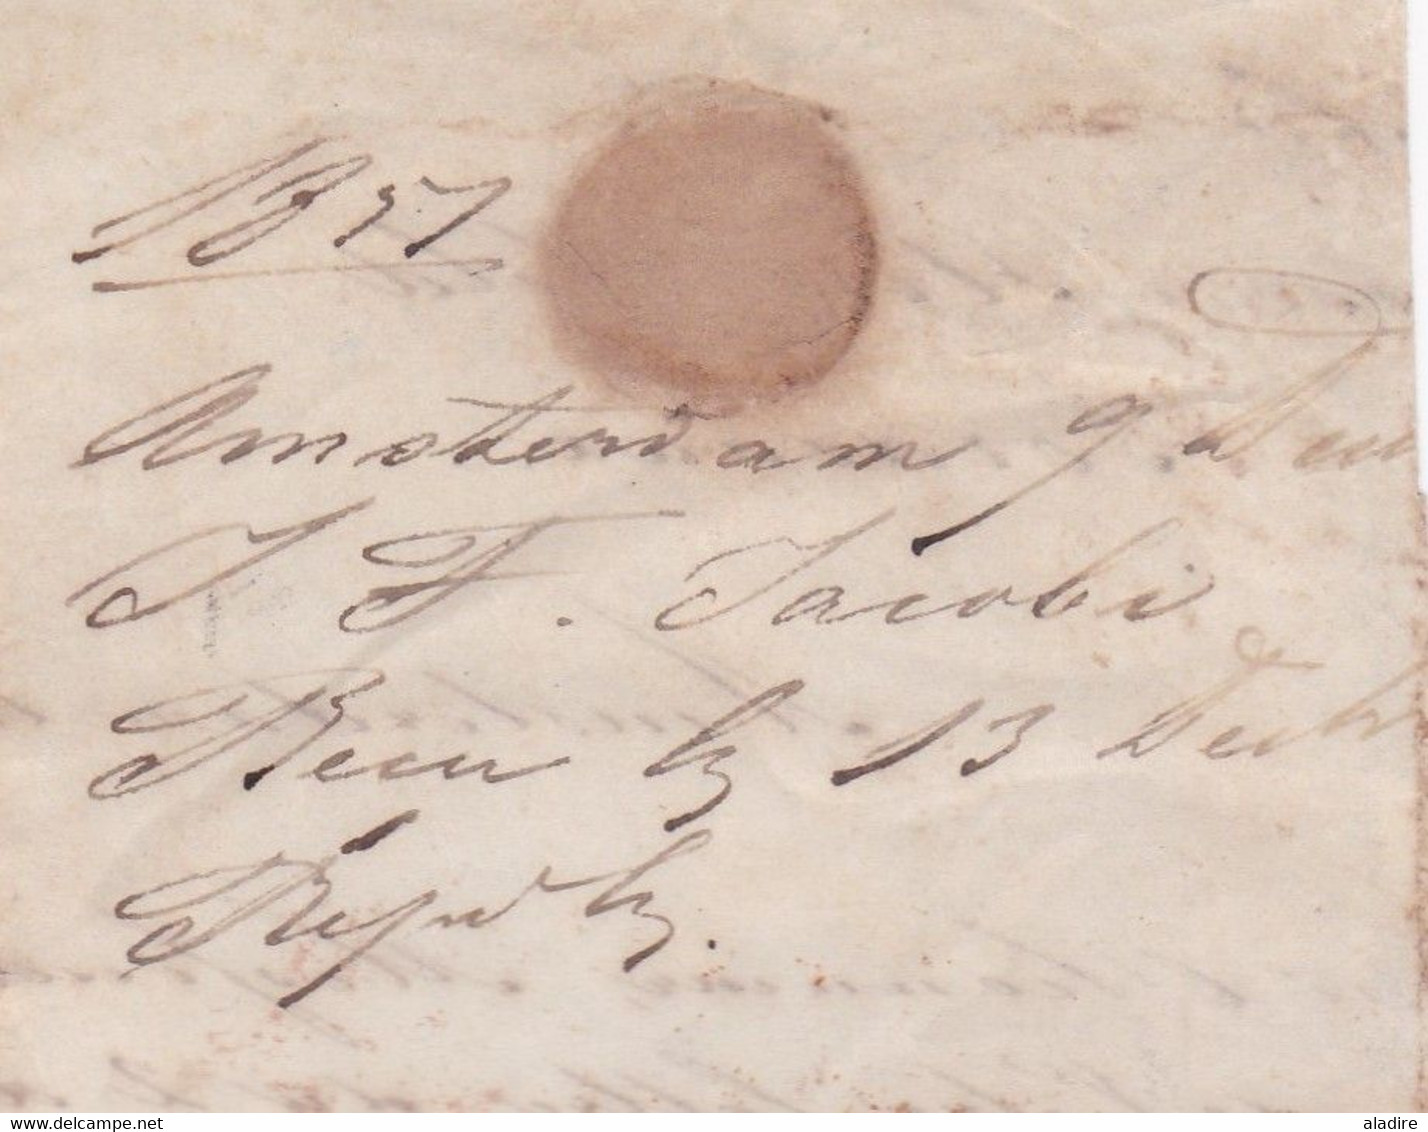 1857
Amsterdam 9 d
J F. Jacobi
Recu le 13 Decbr
Repd le.
www.delcampe.net
aladire